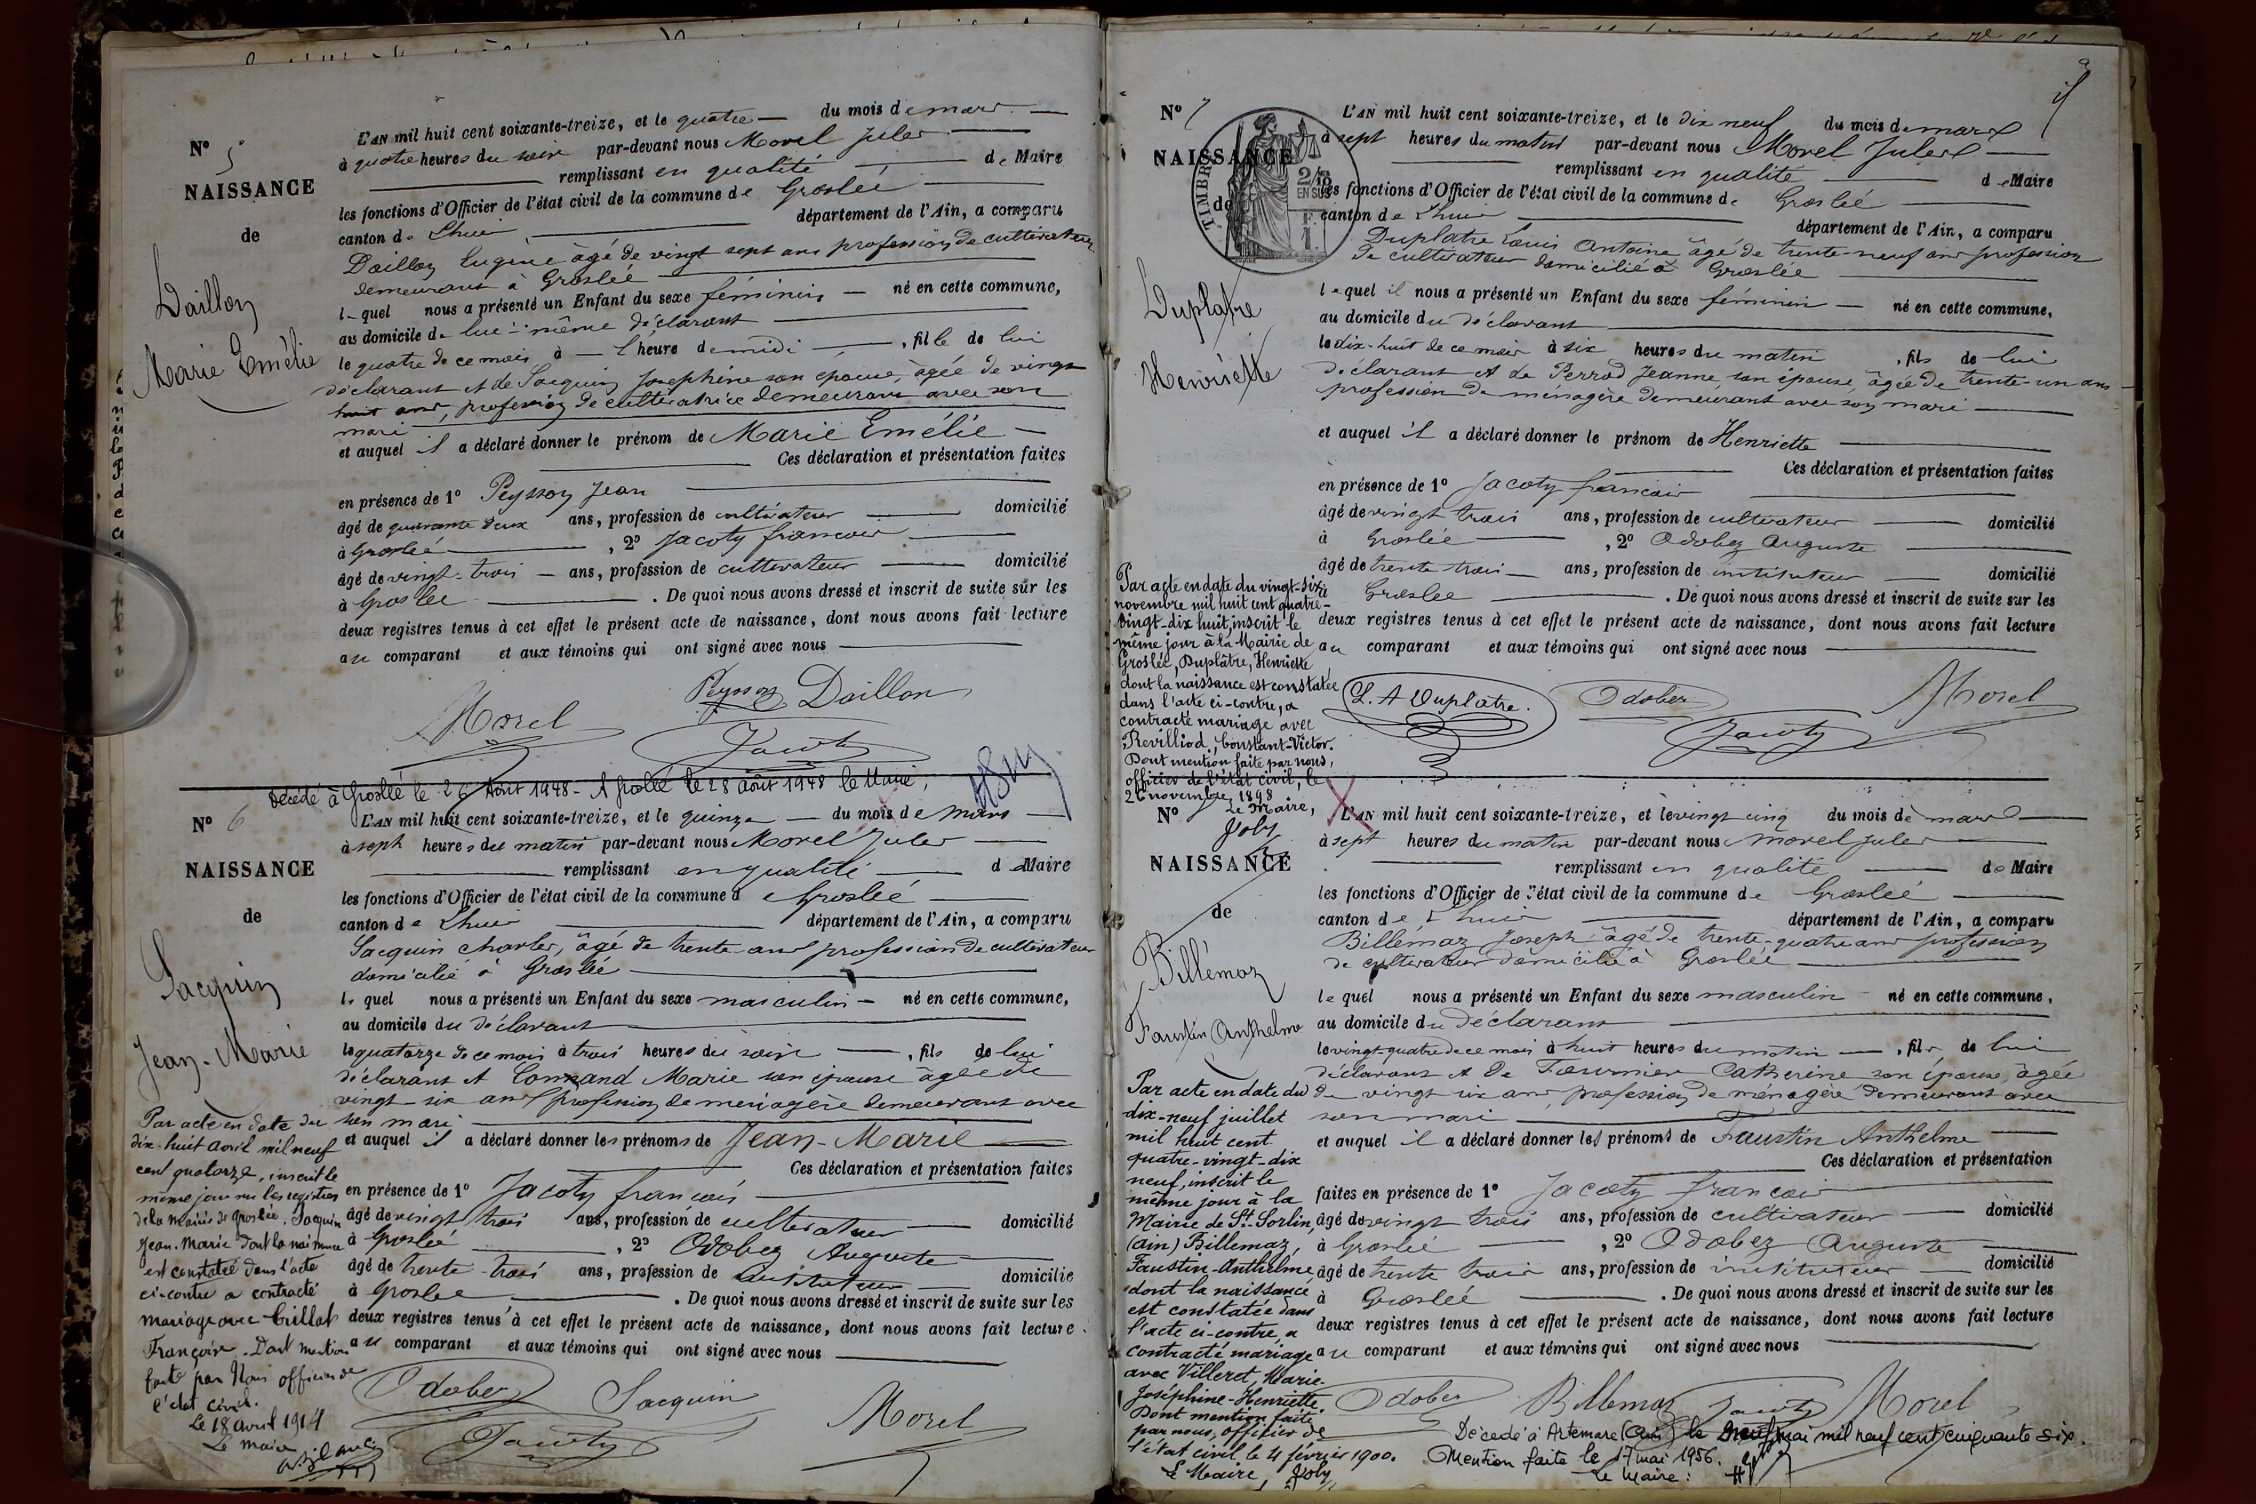 N° 5
NAISSANCE
de
Daillon
Marie Emélie
L'AN mil huit cent soixante-treize, et le quatre du mois de mars
à quatre heures du soir par-devant nous Morel Jules
remplissant en qualité de Maire
les fonctions d'Officier de l'état civil de la commune de Groslée
canton de Lhuis département de l'Ain, a comparu
Daillon Eugène âgé de vingt sept ans profession de cultivateur
demeurant à Groslée
lequel nous a présenté un Enfant du sexe féminin né en cette commune,
au domicile de lui-même déclarant
le quatre de ce mois à l'heure de midi, fille de lui
déclarant et de Jacquin Joséphine son épouse, âgée de vingt
huit ans, profession de cultivatrice demeurant avec son
mari
et auquel il a déclaré donner le prénom de Marie Emélie
Ces déclaration et présentation faites
en présence de 1° Peysson Jean
âgé de quarante deux ans, profession de cultivateur domicilié
à Groslée, 2° Jacoty françois
âgé de vingt-trois ans, profession de cultivateur domicilié
à Groslée. De quoi nous avons dressé et inscrit de suite sur les
deux registres tenus à cet effet le présent acte de naissance, dont nous avons fait lecture
au comparant et aux témoins qui ont signé avec nous
Peysson Daillon
Morel
Jacoty
Décédé à Groslée le 26 Août 1948 - A Groslée le 28 août 1948 le Maire,
N° 6
NAISSANCE
de
Jacquin
Jean-Marie
L'AN mil huit cent soixante-treize, et le quinze du mois de mars
à sept heures du matin par-devant nous Morel Jules
remplissant en qualité de Maire
les fonctions d'Officier de l'état civil de la commune de Groslée
canton de Lhuis département de l'Ain, a comparu
Jacquin Charles, âgé de trente ans profession de cultivateur
domicilié à Groslée
lequel nous a présenté un Enfant du sexe masculin né en cette commune,
au domicile du déclarant
le quatorze de ce mois à trois heures du soir, fils de lui
déclarant et Connand Marie son épouse âgée de
vingt-six ans profession de ménagère demeurant avec
son mari
et auquel il a déclaré donner les prénoms de Jean-Marie
Ces déclaration et présentation faites
en présence de 1° Jacoty françois
âgé de vingt trois ans, profession de cultivateur domicilié
à Groslée, 2° Odobez Auguste
âgé de trente-trois ans, profession de instituteur domicilié
à Groslée. De quoi nous avons dressé et inscrit de suite sur les
deux registres tenus à cet effet le présent acte de naissance, dont nous avons fait lecture
au comparant et aux témoins qui ont signé avec nous
Odobez Jacquin Morel
Jacoty
Par acte en date du
dix-huit avril mil neuf
cent quatorze, inscrit le
même jour sur les registres
de la mairie de Groslée, Jacquin
Jean-Marie dont la naissance
est constatée dans l'acte
ci-contre a contracté
mariage avec Trillat
Françoise. Dont mention
faite par Nous officier de
l'état civil.
Le 18 avril 1914
Le maire
N° 7
NAISSANCE
de
TIMBRE
2/10
EN SUS
F.
1.
Duplatre
Henriette
L'AN mil huit cent soixante-treize, et le dix neuf du mois de mars
à sept heures du matin par-devant nous Morel Jules
remplissant en qualité de Maire
les fonctions d'Officier de l'état civil de la commune de Groslée
canton de Lhuis département de l'Ain, a comparu
Duplatre Louis Antoine âgé de trente-neuf ans profession
de cultivateur domicilié à Groslée
lequel il nous a présenté un Enfant du sexe féminin né en cette commune,
au domicile du déclarant
le dix-huit de ce mois à six heures du matin, fils de lui
déclarant et de Perrod Jeanne, son épouse, âgée de trente-un ans
profession de ménagère demeurant avec son mari
et auquel il a déclaré donner le prénom de Henriette
Ces déclaration et présentation faites
en présence de 1° Jacoty françois
âgé de vingt trois ans, profession de cultivateur domicilié
à Groslée, 2° Odobez Auguste
âgé de trente trois ans, profession de instituteur domicilié
à Groslée. De quoi nous avons dressé et inscrit de suite sur les
deux registres tenus à cet effet le présent acte de naissance, dont nous avons fait lecture
au comparant et aux témoins qui ont signé avec nous
L. A Duplatre. Odobez Morel
Jacoty
Par acte en date du vingt-six
novembre mil huit cent quatre-
vingt-dix huit, inscrit le
même jour à la Mairie de
Groslée, Duplâtre, Henriette
dont la naissance est constatée
dans l'acte ci-contre, a
contracté mariage avec
Revilliod, Constant-Victor.
Dont mention faite par nous,
officier de l'état civil, le
26 novembre 1898
Le Maire,
Joly
N°
NAISSANCE
de
Billémaz
Faustin Anthelme
L'AN mil huit cent soixante-treize, et le vingt cinq du mois de mars
à sept heures du matin par-devant nous Morel Jules
remplissant en qualité de Maire
les fonctions d'Officier de l'état civil de la commune de Groslée
canton de Lhuis département de l'Ain, a comparu
Billémaz Joseph âgé de trente-quatre ans profession
de cultivateur domicilié à Groslée
lequel nous a présenté un Enfant du sexe masculin né en cette commune,
au domicile du déclarant
le vingt-quatre de ce mois à huit heures du matin, fils de lui
déclarant et de Fournier Catherine son épouse, âgée
de vingt six ans, profession de ménagère demeurant avec
son mari
et auquel il a déclaré donner les prénoms de Faustin Anthelme
Ces déclaration et présentation
faites en présence de 1° Jacoty françois
âgé de vingt trois ans, profession de cultivateur domicilié
à Groslée, 2° Odobez Auguste
âgé de trente trois ans, profession de instituteur domicilié
à Groslée. De quoi nous avons dressé et inscrit de suite sur les
deux registres tenus à cet effet le présent acte de naissance, dont nous avons fait lecture
au comparant et aux témoins qui ont signé avec nous
Odobez Billemaz Jacoty Morel
Décédé à Artemare (Ain) le neuf mai mil neuf cent cinquante six.
Mention faite le 17 mai 1956.
Le Maire :
Par acte en date du
dix-neuf juillet
mil huit cent
quatre-vingt-dix
neuf, inscrit le
même jour à la
Mairie de St-Sorlin,
(Ain) Billemaz,
Faustin-Anthelme
dont la naissance
est constatée dans
l'acte ci-contre, a
contracté mariage
avec Villeret, Marie-
Joséphine-Henriette.
Dont mention faite
par nous, officier de
l'état civil, le 4 février 1900.
Le Maire, Joly